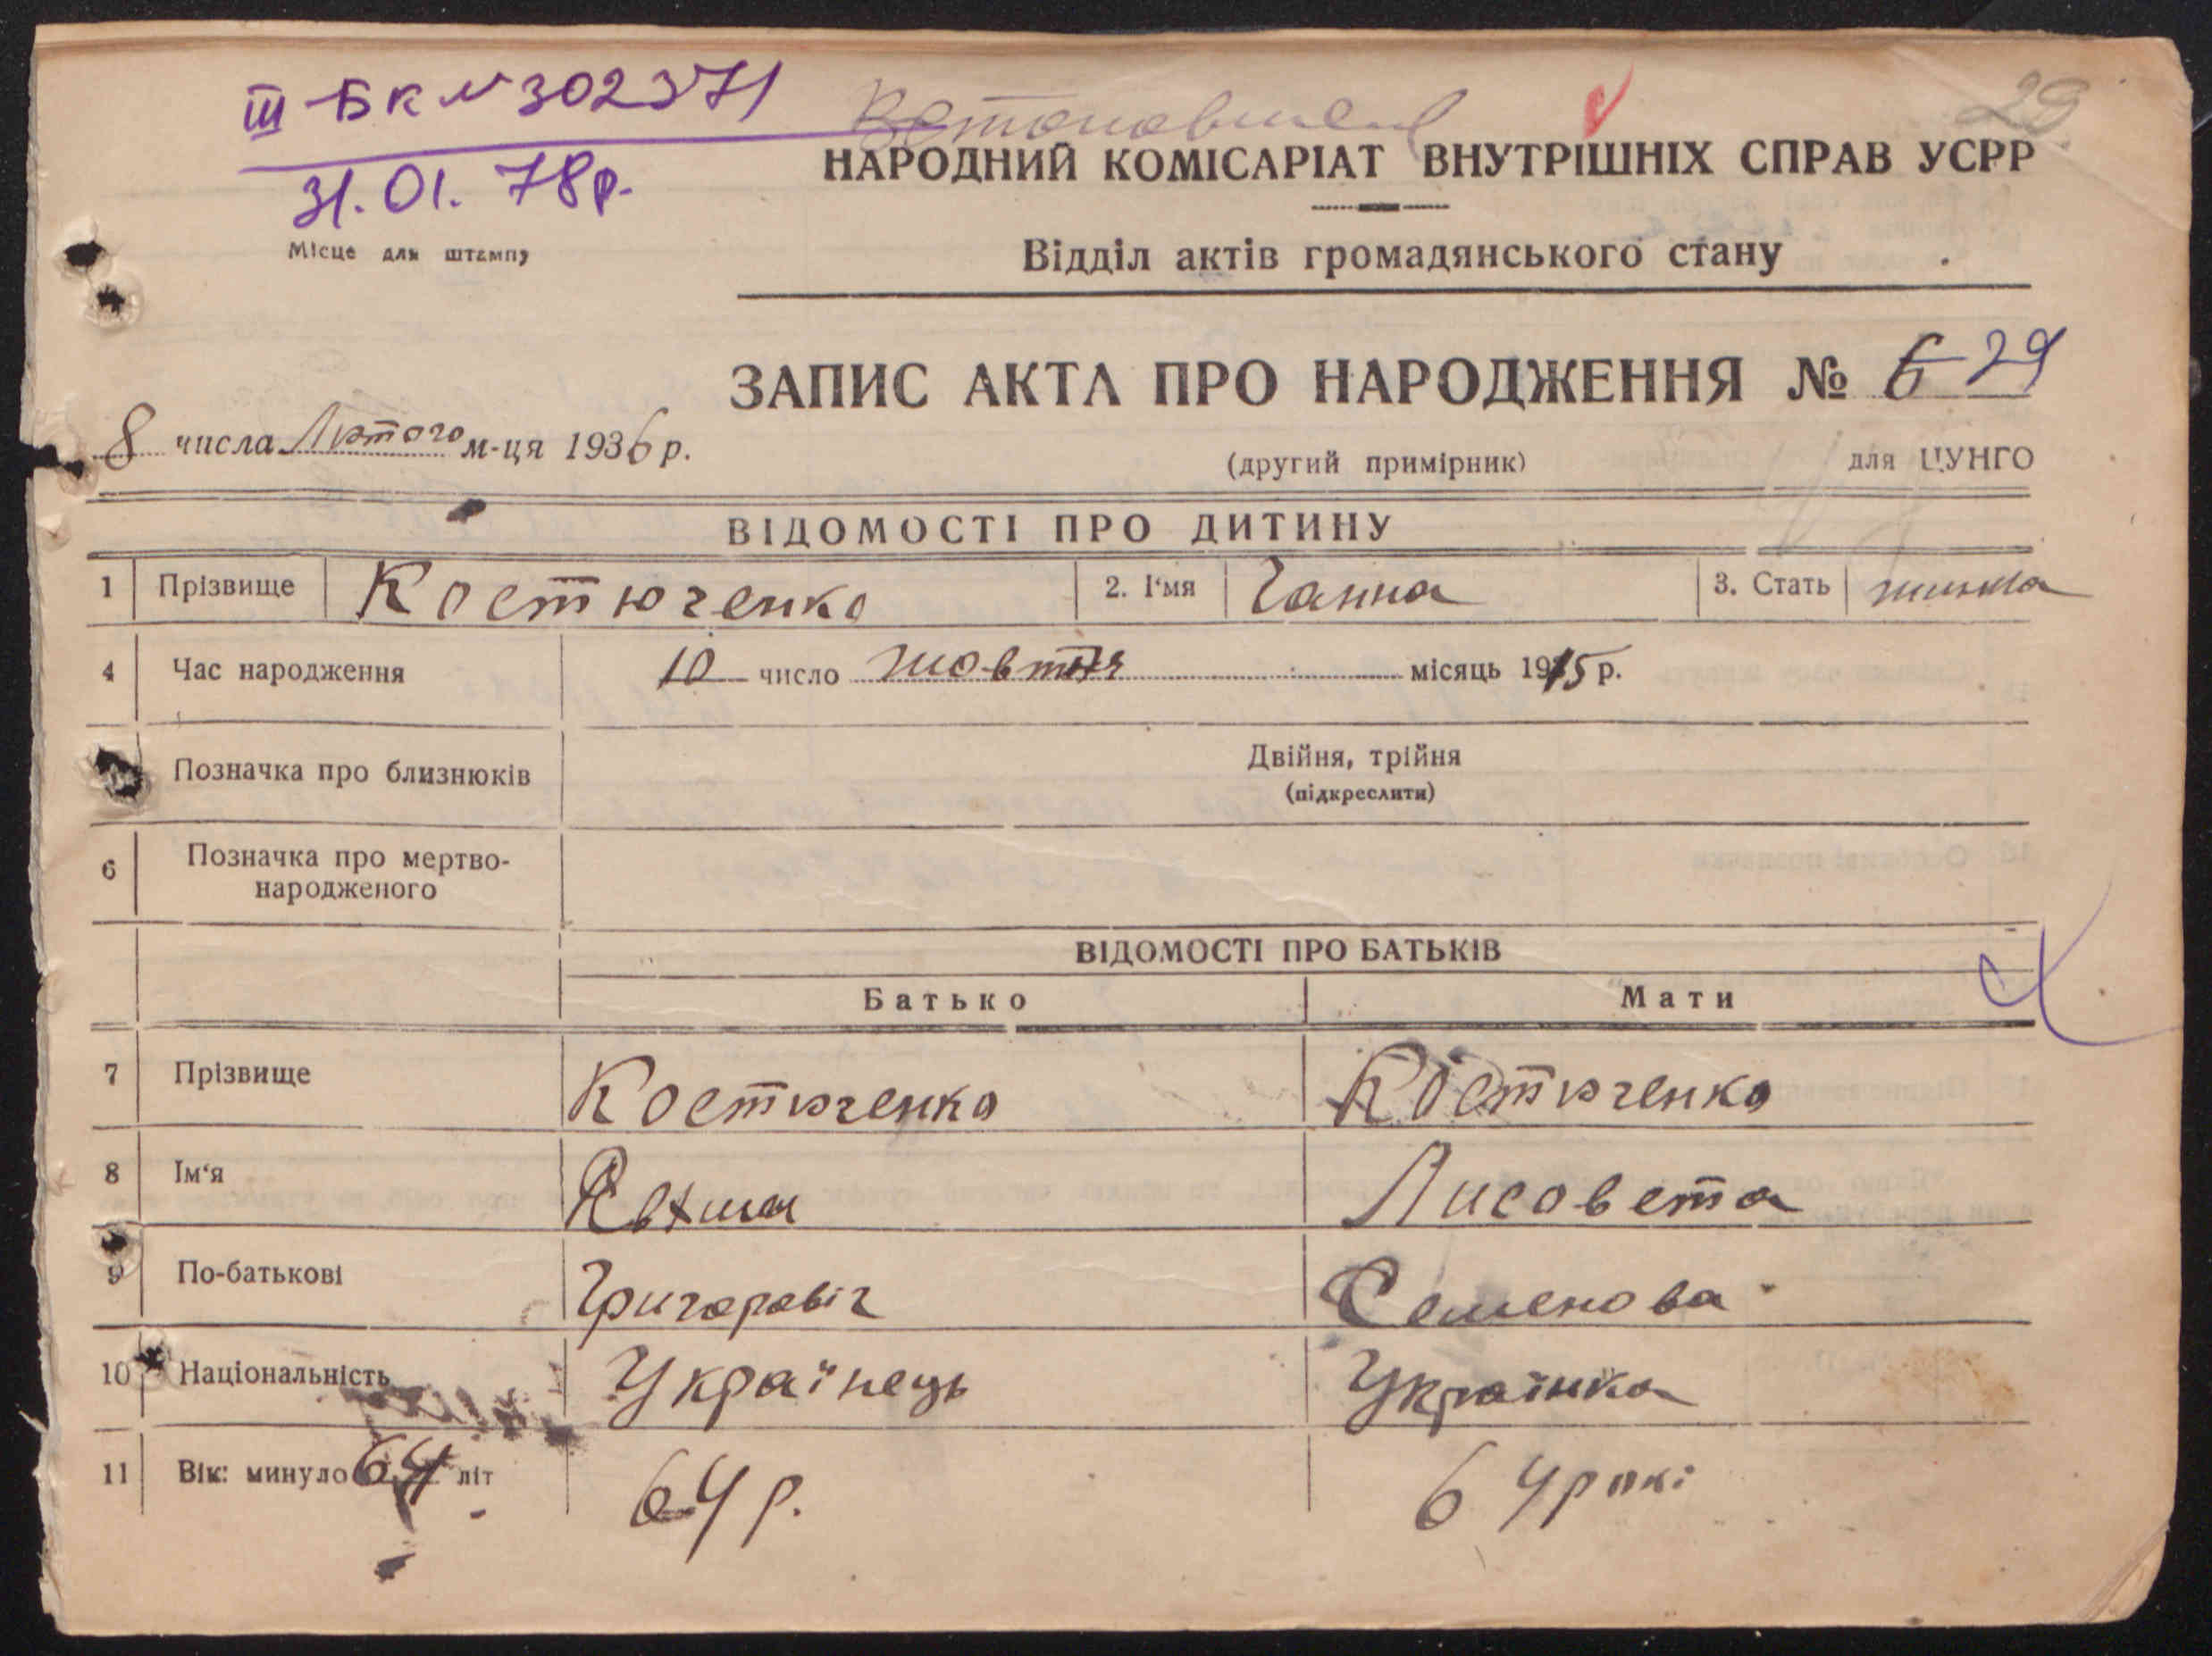 III-БК № 302371
31.01.78р.
Місце для штампу
29
НАРОДНИЙ КОМІСАРІАТ ВНУТРІШНІХ СПРАВ УСРР
Відділ актів громадянського стану
ЗАПИС АКТА ПРО НАРОДЖЕННЯ № 6 29
8 числа Лютого м-ця 1936 р.
(другий примірник) для ЦУНГО
ВІДОМОСТІ ПРО ДИТИНУ
1 Прізвище Костюченко 2. І'мя Ганна 3. Стать жінка
4 Час народження 10 число жовтня місяць 1915 р.
Позначка про близнюків Двійня, трійня
(підкреслити)
6 Позначка про мертво-
народженого
ВІДОМОСТІ ПРО БАТЬКІВ
Батько Мати
7 Прізвище Костюченко Костюченко
8 Ім'я Лисовета
9 По-батькові Григоровіч Семенова
10 Національність Українець Українка
11 Вік: минуло 64 літ 64 р. 64 рокі